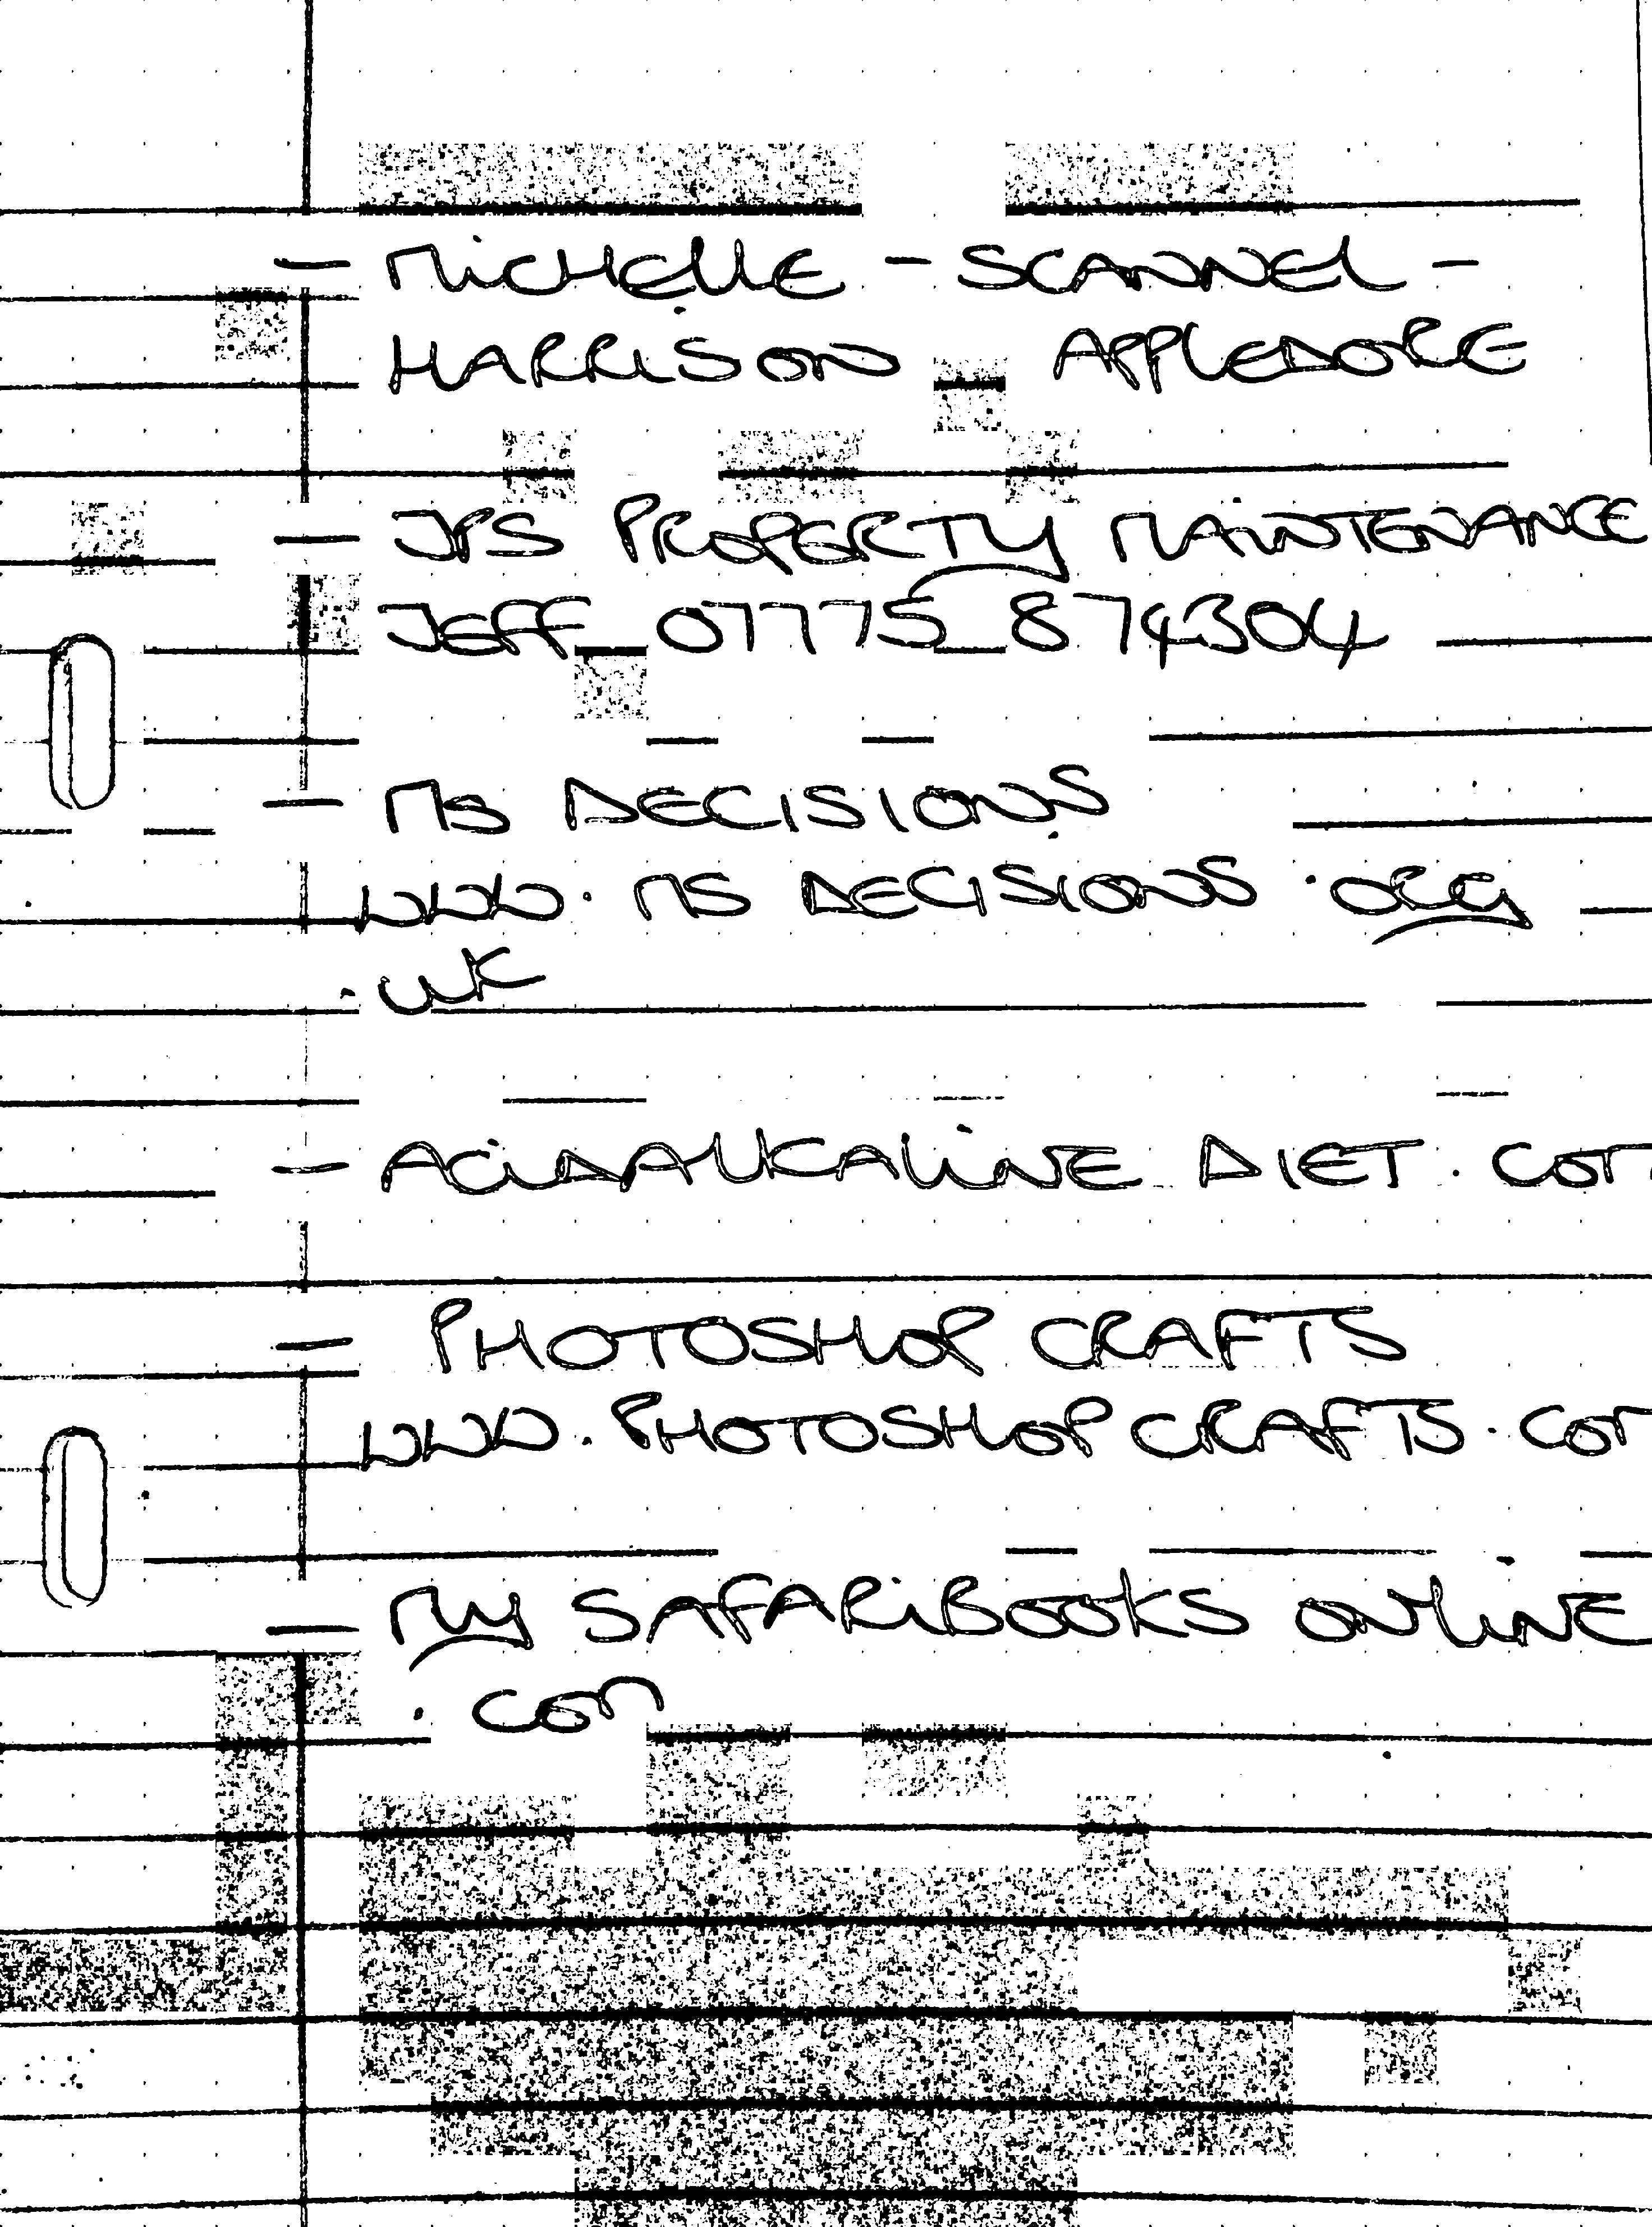 - MICHELLE - SCANNEL -
HARRISON APPLEDORE
- JPS PROPERTY MAINTENANCE
JEFF 07775 874304
- MS DECISIONS
WWW. MS DECISIONS .ORG
.UK
- ACIDALKALINE DIET. COM
- PHOTOSHOP CRAFTS
WWW. PHOTOSHOP CRAFTS. COM
- MY SAFARIBOOKS ONLINE
. COM